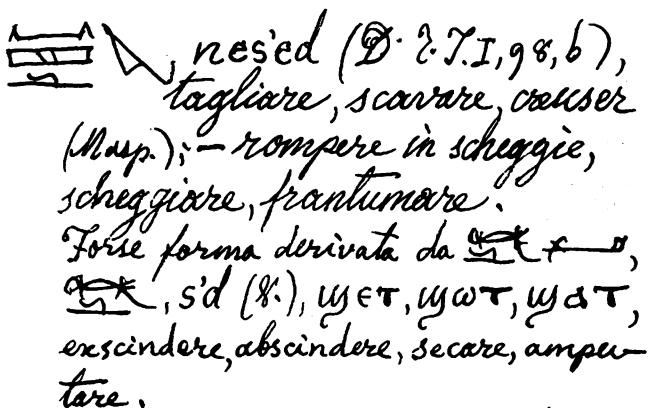 , nes'ed (D. Z.T.I, 98, b),
tagliare, scavare, creuser
(Masp.); — rompere in scheggie,
scheggiare, frantumare.
Forse forma derivata da
, s'd ( ), ϣⲉⲧ, ϣⲱⲧ, ϣⲁⲧ,
exscindere, abscindere, secare, ampu-
tare.